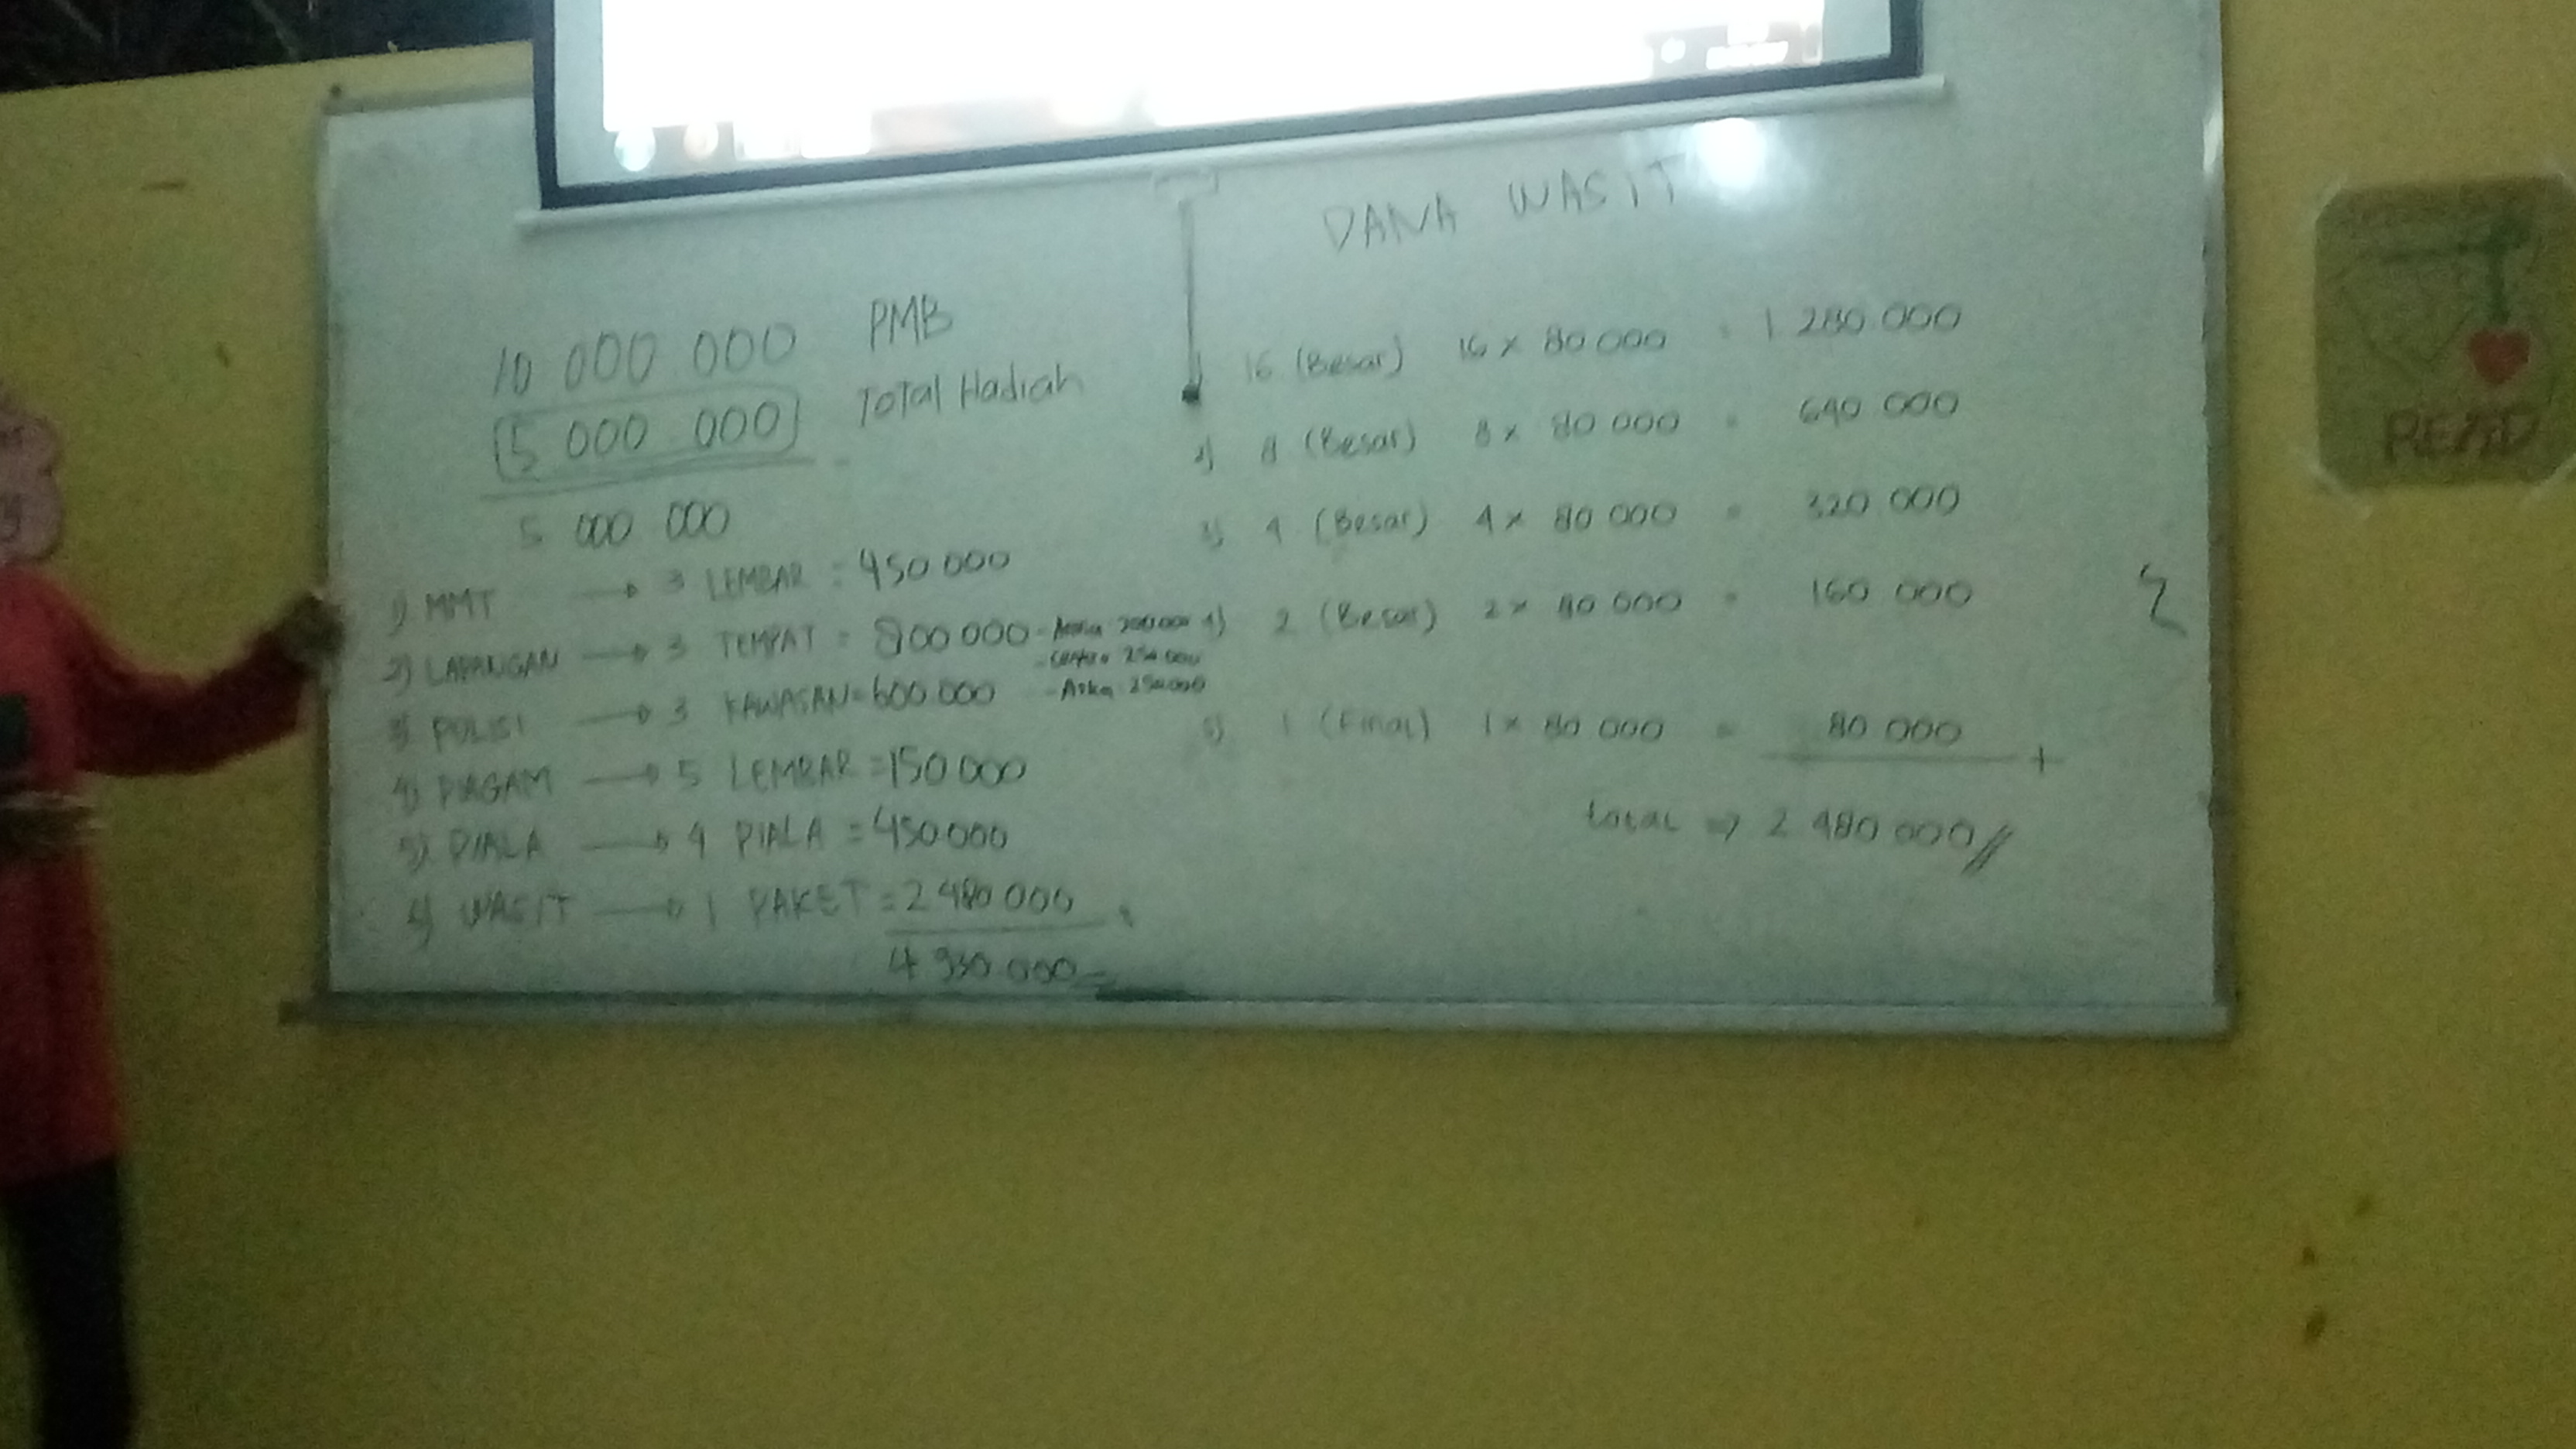 10 000 000 PMB
5 000 000 Total Hadiah
5 000 000
1) MMT → 3 LEMBAR = 450 000
2) LAPANGAN → 3 TEMPAT = 800 000
250.000
- Aska 250.000
3) POLISI → 3 KAWASAN = 600.000
4) PIAGAM → 5 LEMBAR = 150 000
5) PIALA → 4 PIALA = 450 000
6) WASIT → 1 PAKET = 2 480 000 +
4 930 000
DANA WASIT
16 (Besar) 16 x 80 000 = 1 280 000
2) 8 (Besar) 8 x 80 000 = 640 000
3) 4 (Besar) 4 x 80 000 = 320 000
4) 2 (Besar) 2 x 80 000 = 160 000
5) 1 (Final) 1 x 80 000 = 80 000 +
total ⇒ 2 480 000 //
READ